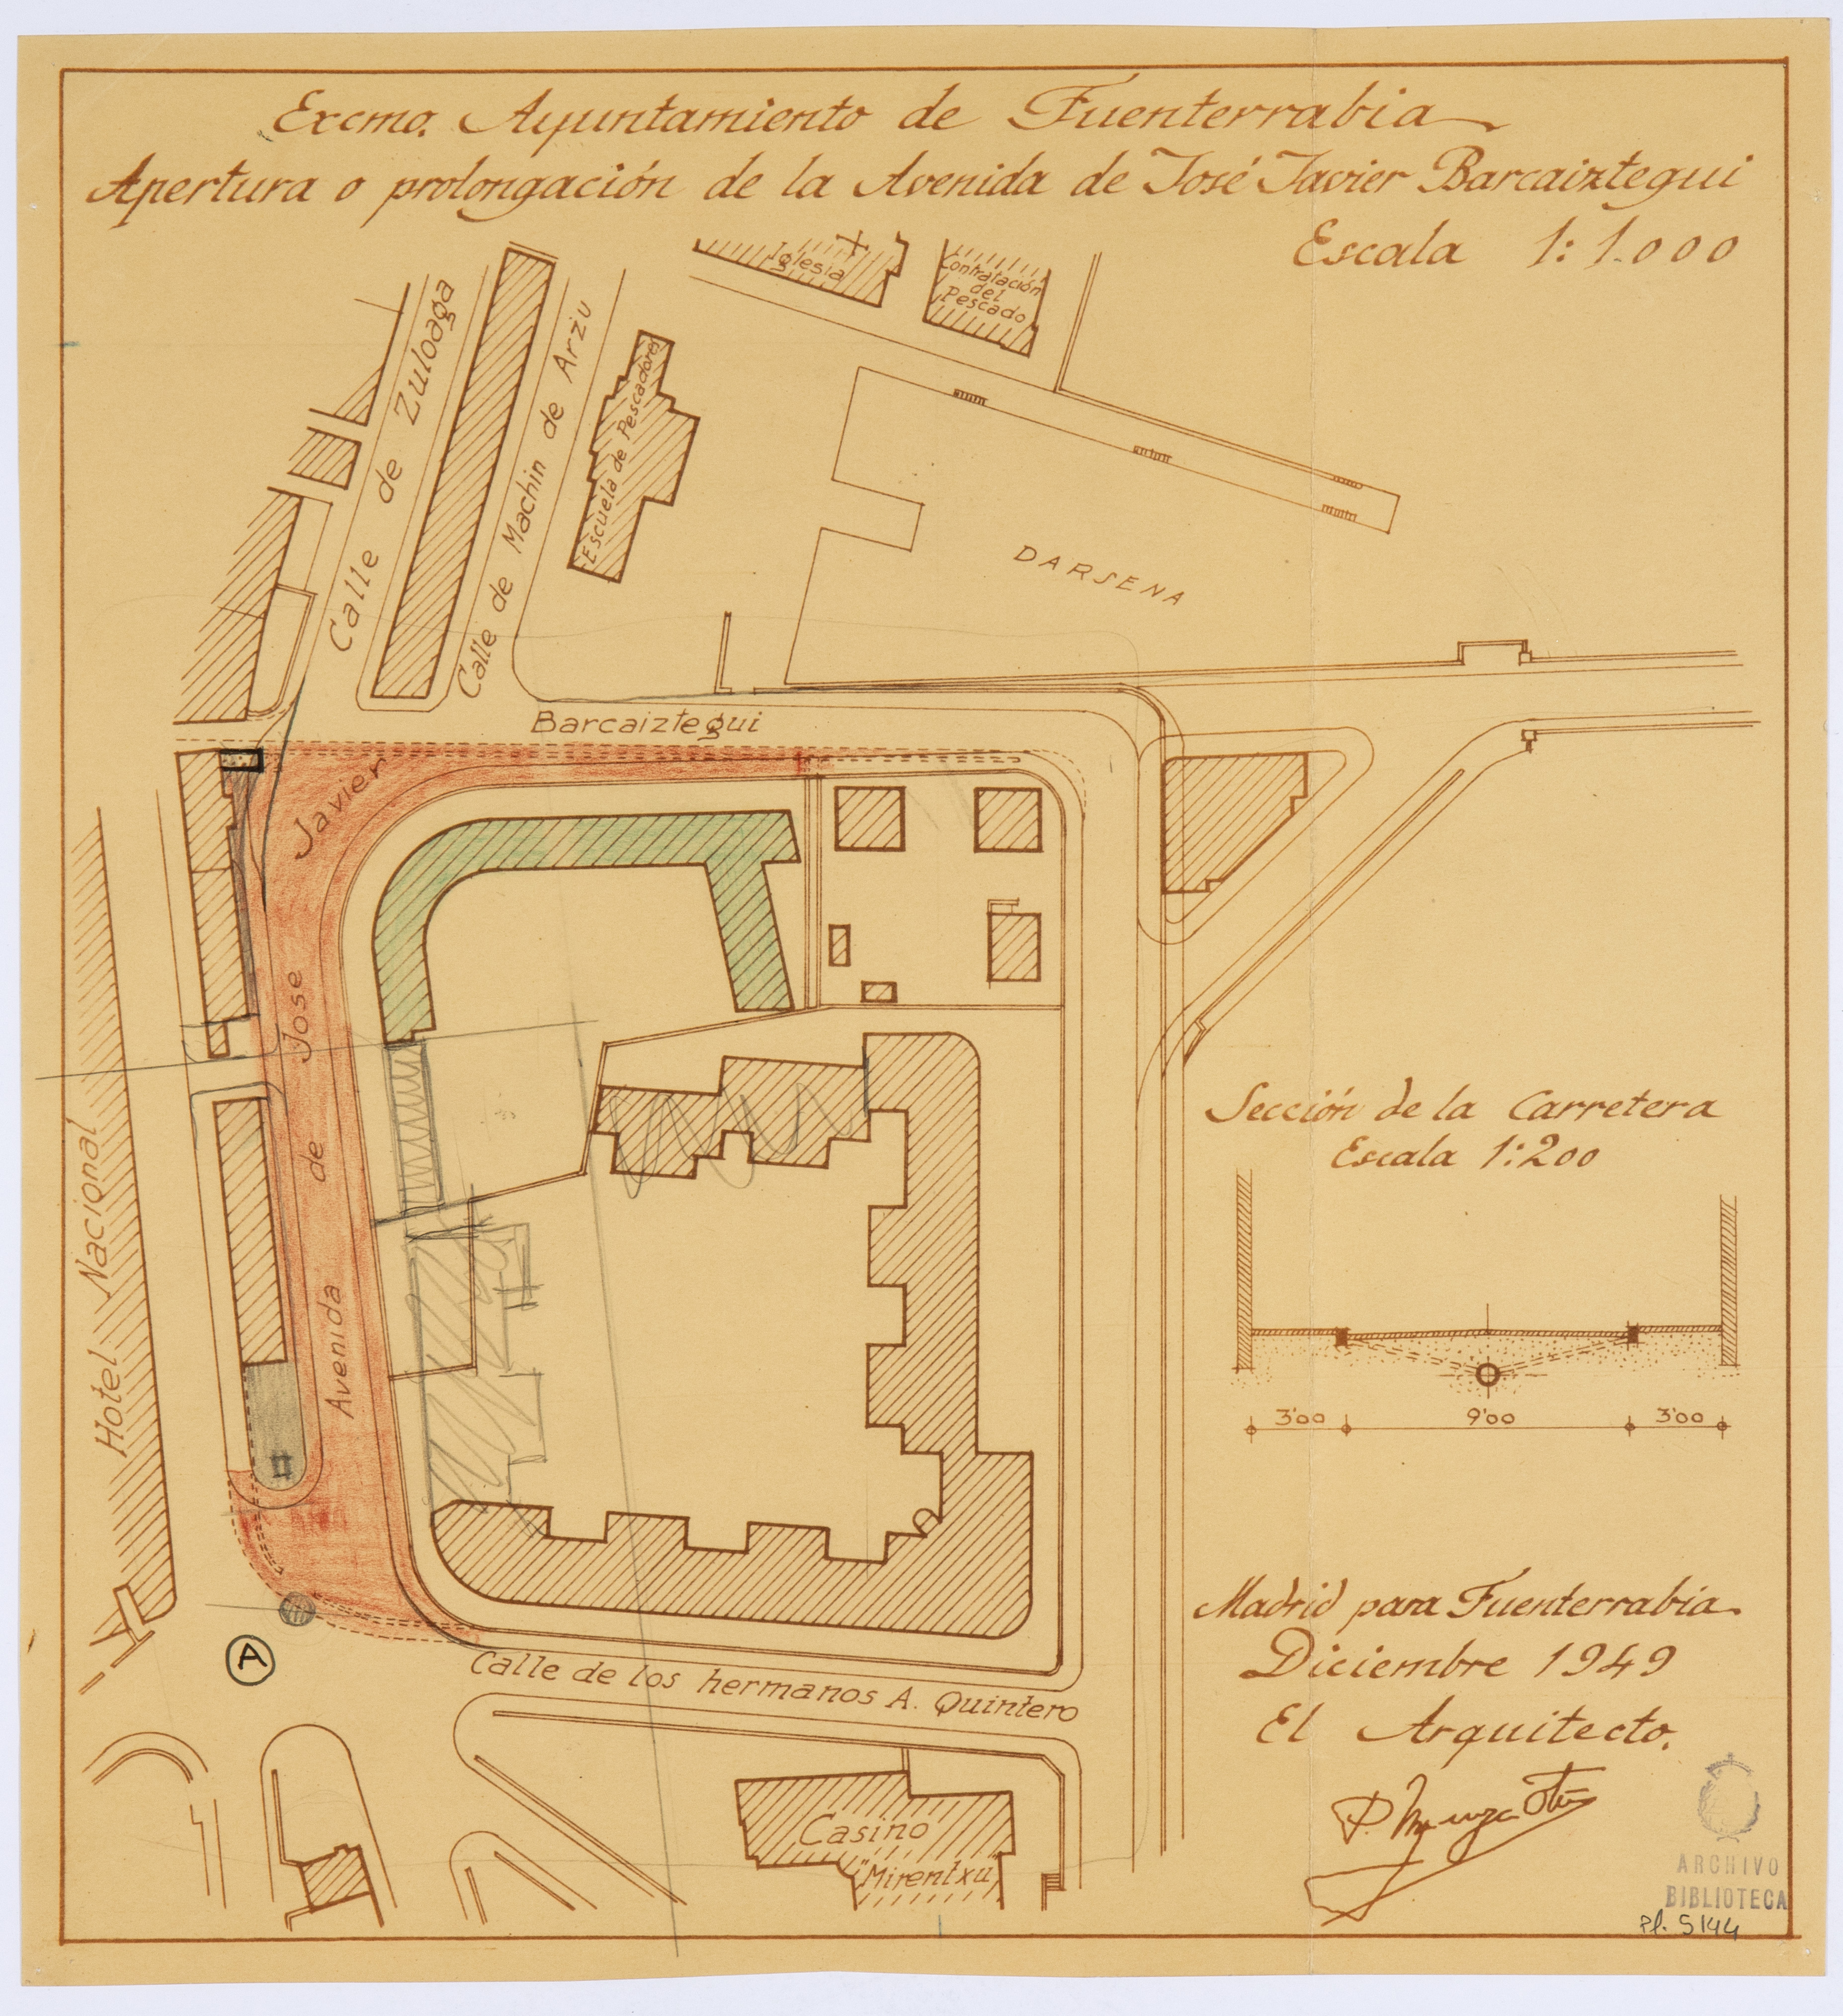 Excmo. Ayuntamiento de Fuenterrabia
Apertura o prolongación de la Avenida de José Javier Barcaiztegui
Escala 1:1.000
Iglesia
Contratación
del
Pescado
Calle de Zuloaga
Calle de Machin de Arzu
Escuela de Pescadores
DARSENA
Avenida de Jose Javier Barcaiztegui
Hotel Nacional
Sección de la Carretera
Escala 1:200
3'00 9'00 3'00
A
Calle de los hermanos A. Quintero
Casino
"Mirentxu"
Madrid para Fuenterrabia
Diciembre 1949
El Arquitecto.
ARCHIVO
BIBLIOTECA
Pl. 5144